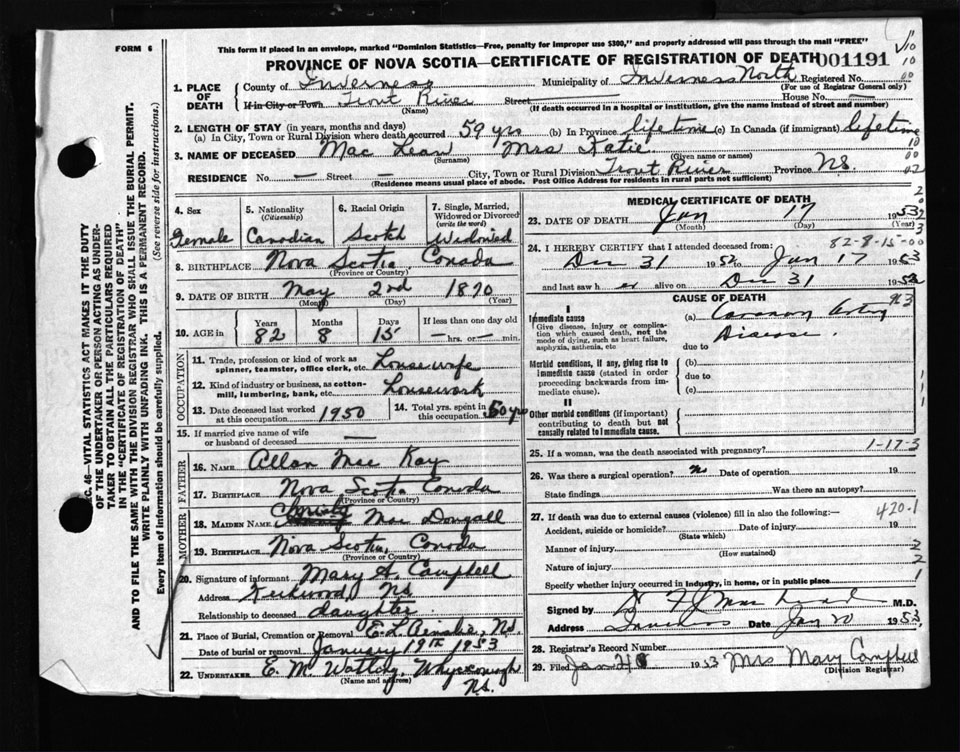 FORM 6
This form if placed in an envelope, marked "Dominion Statistics—Free, penalty for improper use $300," and properly addressed will pass through the mail "FREE"
PROVINCE OF NOVA SCOTIA—CERTIFICATE OF REGISTRATION OF DEATH 001191
1. PLACE OF DEATH
County of Inverness Municipality of Inverness North Registered No.
(For use of Registrar General only)
If in City or Town Trout River Street House No. —
(Name) (If death occurred in a hospital or institution, give the name instead of street and number)
2. LENGTH OF STAY (in years, months and days)
(a) In City, Town or Rural Division where death occurred 59 yrs (b) In Province lifetime (c) In Canada (if immigrant) lifetime
3. NAME OF DECEASED Mac Lean Mrs Katie
(Surname) (Given name or names)
RESIDENCE No. — Street — City, Town or Rural Division Trout River Province NS.
(Residence means usual place of abode. Post Office Address for residents in rural parts not sufficient)
4. Sex Female
5. Nationality (Citizenship) Canadian
6. Racial Origin Scotch
7. Single, Married, Widowed or Divorced (write the word) Widowed
8. BIRTHPLACE Nova Scotia Canada
(Province or Country)
9. DATE OF BIRTH May 2nd 1870
(Month) (Day) (Year)
10. AGE in Years 82 Months 8 Days 15 If less than one day old — hrs. or — min.
OCCUPATION
11. Trade, profession or kind of work as spinner, teamster, office clerk, etc. Housewife
12. Kind of industry or business, as cotton-mill, lumbering, bank, etc. Housework
13. Date deceased last worked at this occupation 1950
14. Total yrs. spent in this occupation 50 yrs
15. If married give name of wife or husband of deceased —
FATHER
16. NAME Allan Mac Kay
17. BIRTHPLACE Nova Scotia Canada
(Province or Country)
MOTHER
18. MAIDEN NAME Christy Mac Dougall
19. BIRTHPLACE Nova Scotia, Canada
(Province or Country)
20. Signature of informant Mary A. Campbell
Address Kirkwood, NS
Relationship to deceased daughter
21. Place of Burial, Cremation or Removal E. L. Ainslie, NS.
Date of burial or removal January 19th 1953
22. UNDERTAKER E. M. Watling, Whycocomagh
(Name and address) N.S.
MEDICAL CERTIFICATE OF DEATH
23. DATE OF DEATH Jan 17 1953
(Month) (Day) (Year)
24. I HEREBY CERTIFY that I attended deceased from: 82-8-15-00
Dec 31 1952 to Jan 17 1953
and last saw h er alive on Dec 31 1952
CAUSE OF DEATH
I
Immediate cause
Give disease, injury or complication which caused death, not the mode of dying, such as heart failure, asphyxia, asthenia, etc
(a) Coronary Artery
Disease.
due to
Morbid conditions, if any, giving rise to immediate cause (stated in order proceeding backwards from immediate cause).
(b)
due to
(c)
II
Other morbid conditions (if important) contributing to death but not causally related to immediate cause.
25. If a woman, was the death associated with pregnancy? 1-17-3
26. Was there a surgical operation? No Date of operation 19
State findings Was there an autopsy?
27. If death was due to external causes (violence) fill in also the following:— 420.1
Accident, suicide or homicide? Date of injury 19
(State which)
Manner of injury 2
(How sustained)
Nature of injury 2
Specify whether injury occurred in industry, in home, or in public place 1
Signed by M.D.
Address Inverness Date Jan 20 1953
28. Registrar's Record Number
29. Filed Jan 20 1953 Mrs Mary Campbell
(Division Registrar)
SEC. 46—VITAL STATISTICS ACT MAKES IT THE DUTY
OF THE UNDERTAKER OR PERSON ACTING AS UNDER-
TAKER TO OBTAIN ALL THE PARTICULARS REQUIRED
IN THE "CERTIFICATE OF REGISTRATION OF DEATH"
AND TO FILE THE SAME WITH THE DIVISION REGISTRAR WHO SHALL ISSUE THE BURIAL PERMIT.
WRITE PLAINLY WITH UNFADING INK. THIS IS A PERMANENT RECORD.
Every item of Information should be carefully supplied. (See reverse side for instructions.)